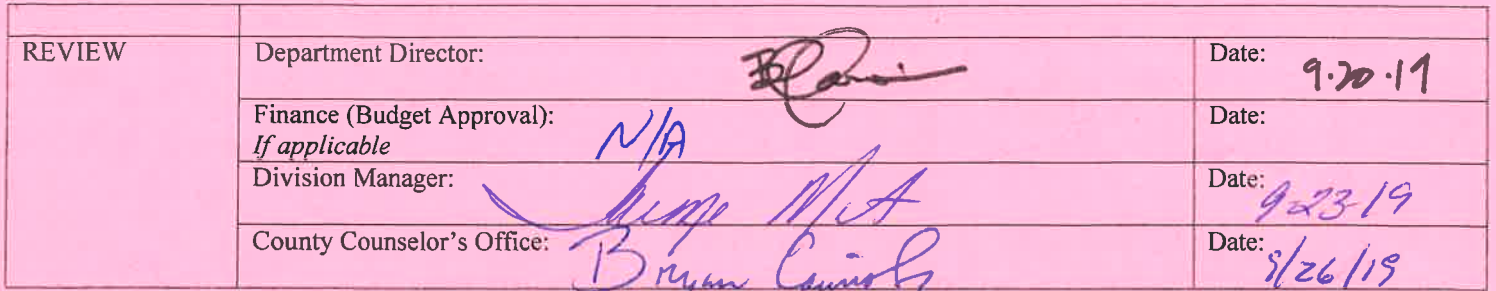 REVIEW
Department Director:
Date: 9.20.19
Finance (Budget Approval):
If applicable
N/A
Date:
Division Manager:
Date: 9-23-19
County Counselor's Office: Bryan
Date: 9/26/19